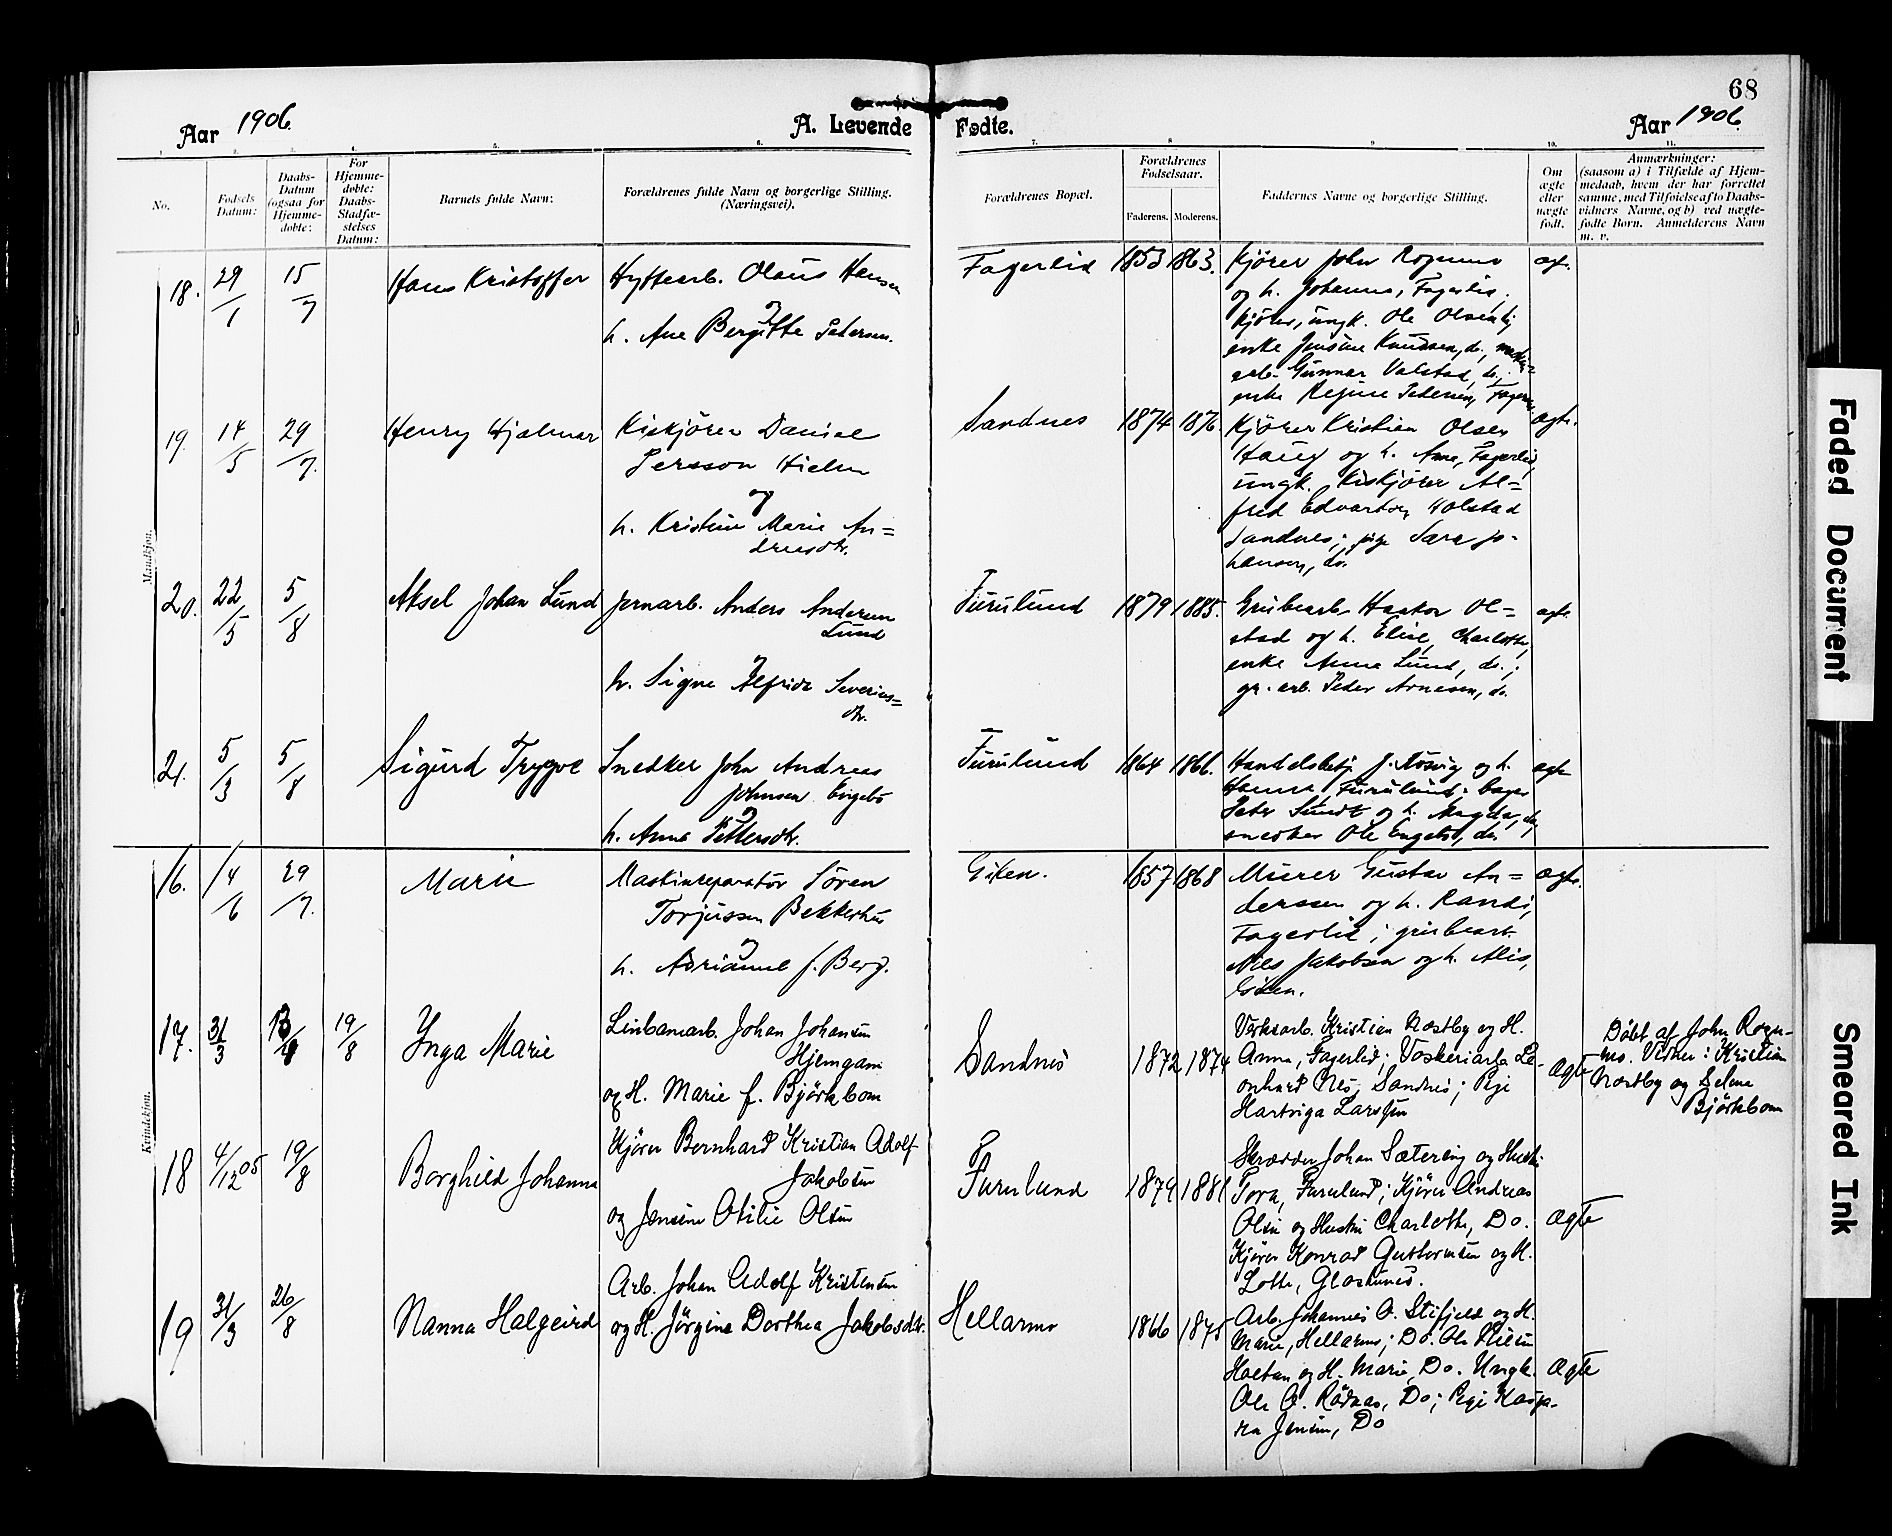 68
Aar 1906.
A. Levende Fødte.
Aar 1906.
1. 2. 3. 4. 5. 6. 7. 8 9 10. 11.
No.
Fødsels Datum:
Daabs-Datum (ogsaa for Hjemme-døbte:
For Hjemme-døbte: Daabs-Stadfæ-stelses Datum:
Barnets fulde Navn:
Forældrenes fulde Navn og borgerlige Stilling. (Næringsvei).
Forældrenes Bopæl.
Forældrenes Fødselsaar.
Faderens. Moderens.
Faddernes Navne og borgerlige Stilling.
Om ægte eller uægte født.
Anmærkninger:
(saasom a) i Tilfælde af Hjem-
medaab, hvem der har forrettet
samme, med Tilføielse af to Daabs-
vidners Navne, og b) ved uægte-
fødte Børn. Anmelderens Navn
m. v.
Mandkjøn.
18. 29/1 15/7 Hans Kristoffer
Hyttearb. Olaus Hansen
og
h. Ane Bergitte Pedersen.
Fagerlid 1853 1863.
Kjører John Rognmo
og h. Johanna, Fagerlid.
Kjører, ungk. Ole Olsen
enke Jensine Knudsen, do.,
arb. Gunnar Valstad, do.;
enke Regine Pedersen, Fagerli
ægt.
19. 14/5 29/7. Henry Hjalmar
Kiskjører Daniel
Persson Hielm
og
h. Kristine Marie An=
dreasdtr.
Sandnes 1874 1876.
Kjører Kristian Olsen
Haug og h. Anna, Fagerlid,
ungk. Kiskjører Al=
fred Edvartsen Holstad
Sandnes; pige Sara Jo-
hansen, do.
ægte.
20. 22/5 5/8 Aksel Johan Lund
Jernarb. Anders Andersen
Lund
og
h. Signe Alfrida Severins=
dtr.
Furulund 1879 1885.
Grubearb. Haakon Ol=
stad og h. Elise Charlotte,
enke Anna Lund, do.;
gr. arb. Peder Arnesen, do.
ægte.
21. 5/3 5/8 Sigurd Trygve
Snedker John Andreas
Johnsen Engebø
og
h. Anna Pettersdtr.
Furulund 1864 1866.
Handelsbetj. J. Rosvig og h.
Hanna Furulund; bager
Peter Lundt og h. Magda, do,
snedker Ole Engebø, do.
ægte
Kvindekjøn.
16. 14/6 29/7. Marie
Maskinreparatør Søren
Torjussen Bekkerhus
og
h. Adrianne f. Berg.
Giken. 1857 1868
Murer Gustav An=
derssen og h. Randi,
Fagerlid; grubearb.
Nils Jakobsen og h. Alis,
Giken.
ægte.
17. 31/3 13/4 19/8 Ynga Marie
Linbanearb. Johan Johansen
Hjemgam
og H. Marie f. Björkbom
Sandnes 1872 1874
Verksarb. Kristian Næstby og H.
Anna, Fagerlid; Vaskeriarb. Le-
onhard Nes, Sandnes; Pige
Hartviga Larssen
Ægte
Døbt af John Rogn-
mo. Vidner: Kristian
Næstby og Selma
Björkbom
18 4/12 05 19/8 Borghild Johanna
Kjører Bernhard Kristian Adolf
Jakobsen
og Jensine Otilie Olsen
Furulund 1879 1881
Skrædder Johan Sætering og Hustru
Tora, Furulund; Kjører Andreas
Olsen og Hustru Charlotte, Do.
Kjører Konrad Guttormsen og H.
Lotte, Glastunes.
Ægte
19 31/3 26/8 Nanna Halgeird
Arb. Johan Adolf Kristensen
og H. Jörgine Dorthea Jakobsdtr.
Hellarmo 1866 1875
Arb. Johannes O. Stifjeld og H.
Marie, Hellarmo; Do. Ole Nilsen
Holtan og H. Marie, Do. Ungk.
Ole O. Rödnas, Do; Pige Kasp-
ra Jensen, Do
Ægte
Faded Document
Smeared Ink